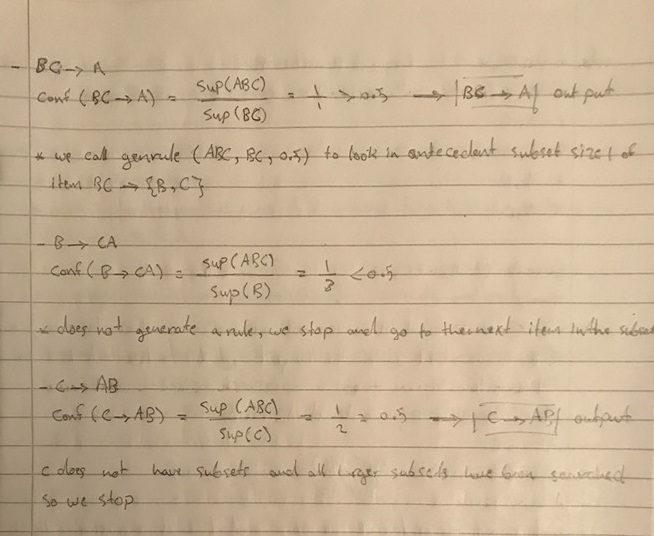 - BC → A
Conf (BC → A) = Sup(ABC) / Sup(BC) = 1/1 > 0.5 → |BC → A| output
* we call genrule (ABC, BC, 0.5) to look in antecedent subset size 1 of
item BC → {B, C}
- B → CA
Conf (B → CA) = Sup(ABC) / Sup(B) = 1/3 < 0.5
* does not generate a rule, we stop and go to the next item in the subset
- C → AB
Conf (C → AB) = Sup (ABC) / Sup(C) = 1/2 = 0.5 → |C → AB| output
C does not have subsets and all larger subsets have been searched
so we stop